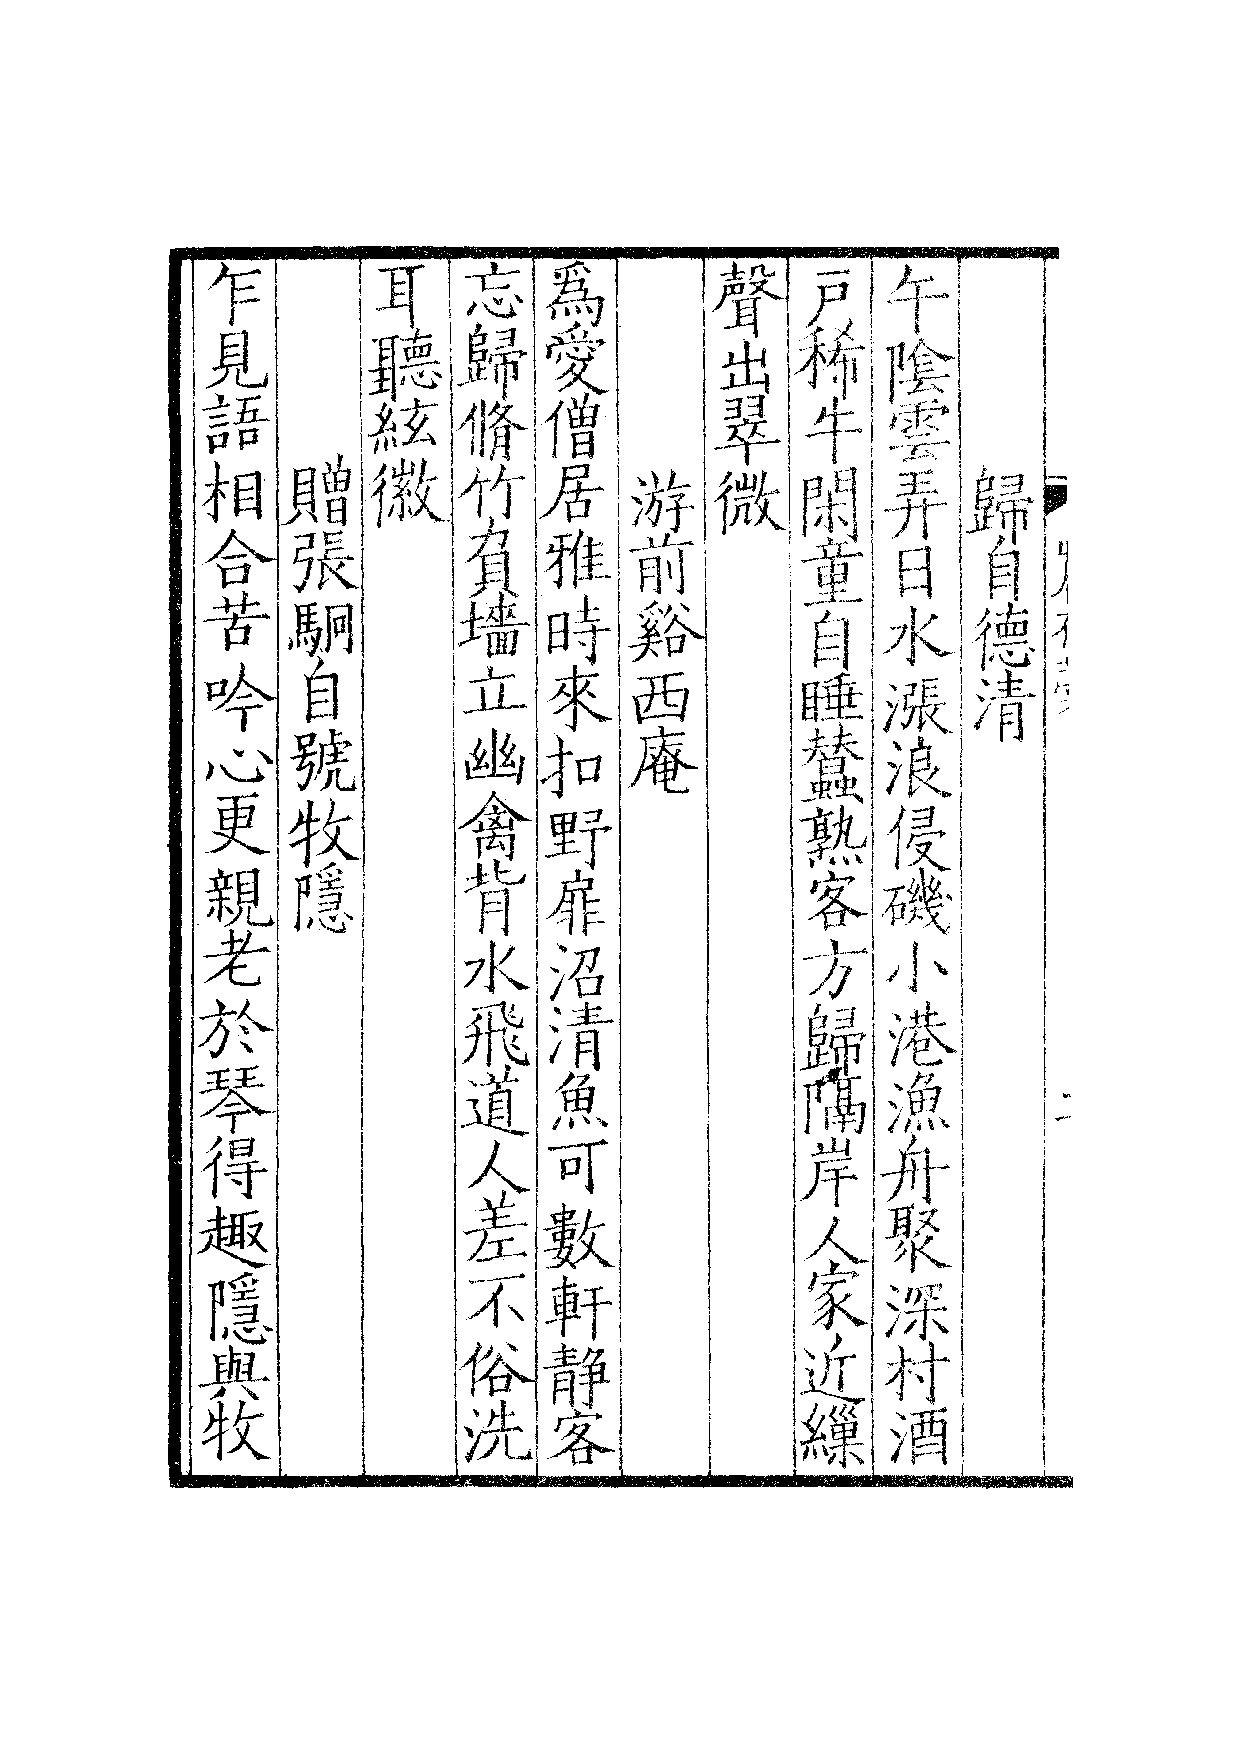 歸自德清
午陰雲弄日水漲浪侵磯小港漁舟聚深村酒
戸稀牛閑童自睡蠶熟客方歸隔岸人家近繅
聲出翠微
游前谿西庵
爲愛僧居雅時來扣野扉沼清魚可數軒静客
忘歸脩竹負墻立幽禽背水飛道人差不俗洗
耳聽絃徽
贈張駉自號牧隱
乍見語相合苦吟心更親老於琴得趣隱與牧